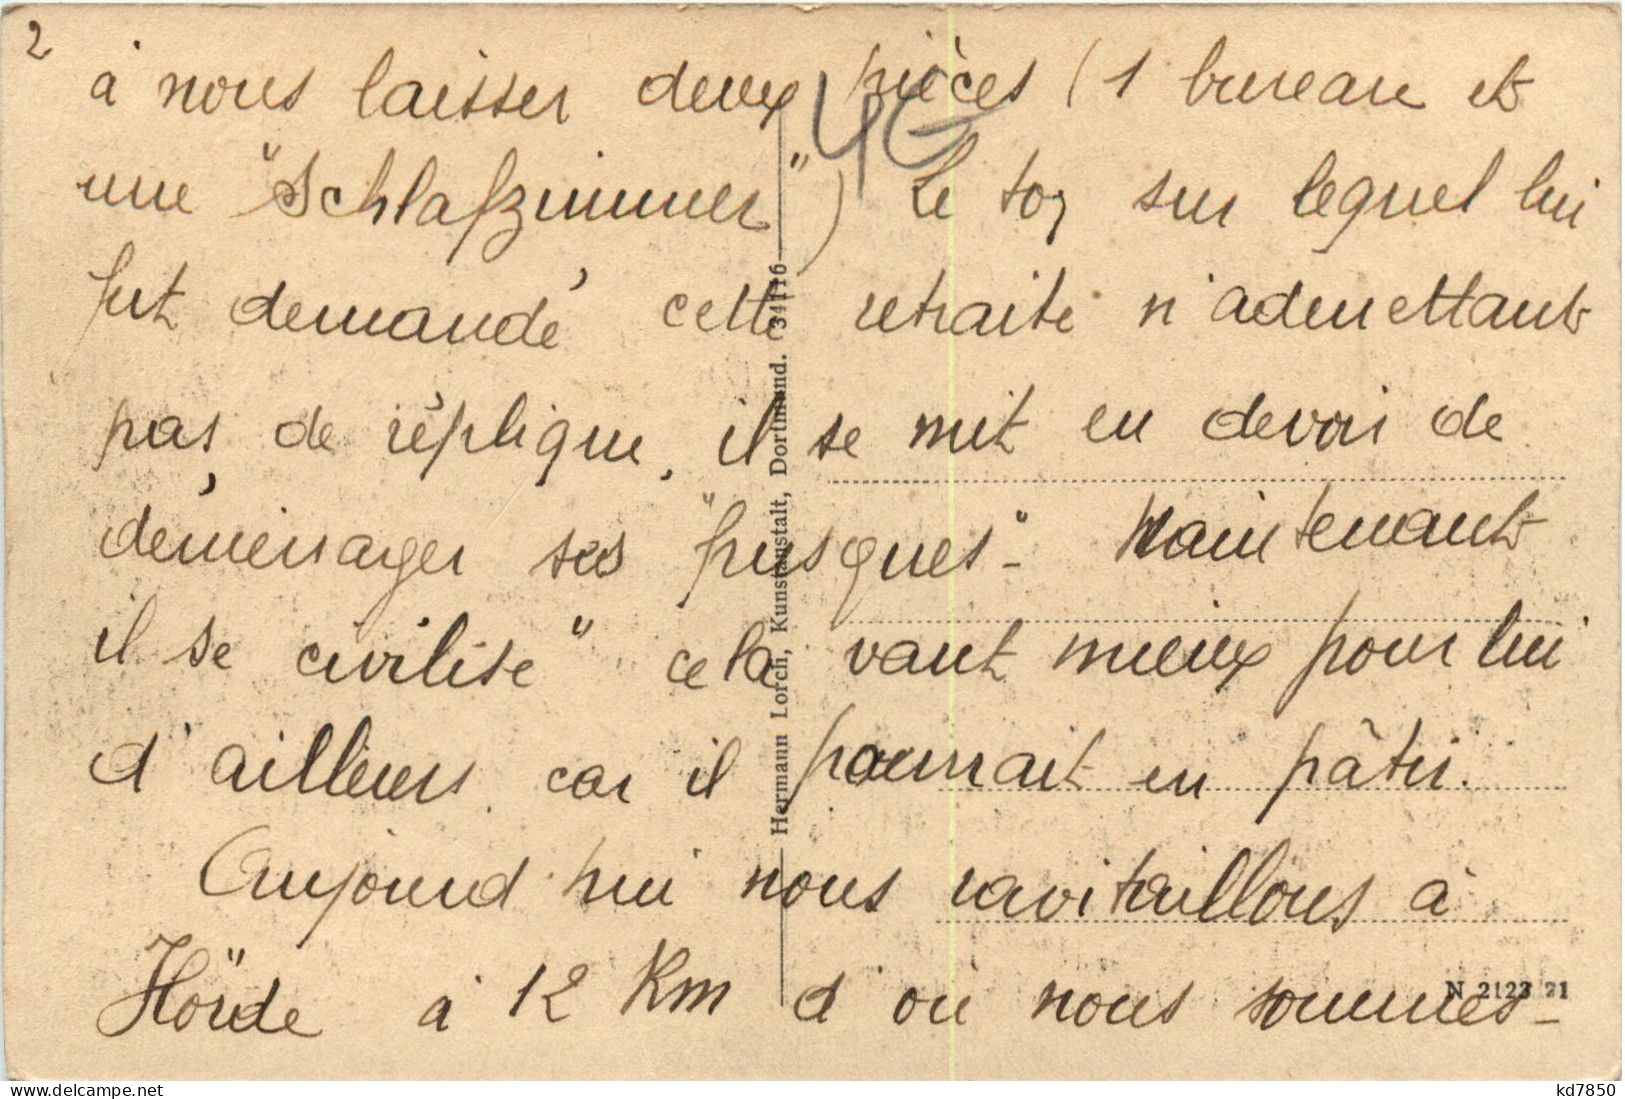 2
à nous laisser deux pièces (1 bureau et
4G
une "Schlafzimmer") Le ton sur lequel lui
fut demandé cette retraite n'admettant
pas de réplique, il se mit en devoir de
déménager ses "frusques"- Maintenant
il se civilise" cela vaut mieux pour lui
d'ailleurs, car il pourrait en pâtir.
Aujourd'hui nous ravitaillons à
Hörde à 12 Km d'où nous sommes-
Hermann Lorch, Kunstanstalt, Dortmund.
N 2123 21
www.delcampe.net
kd7850